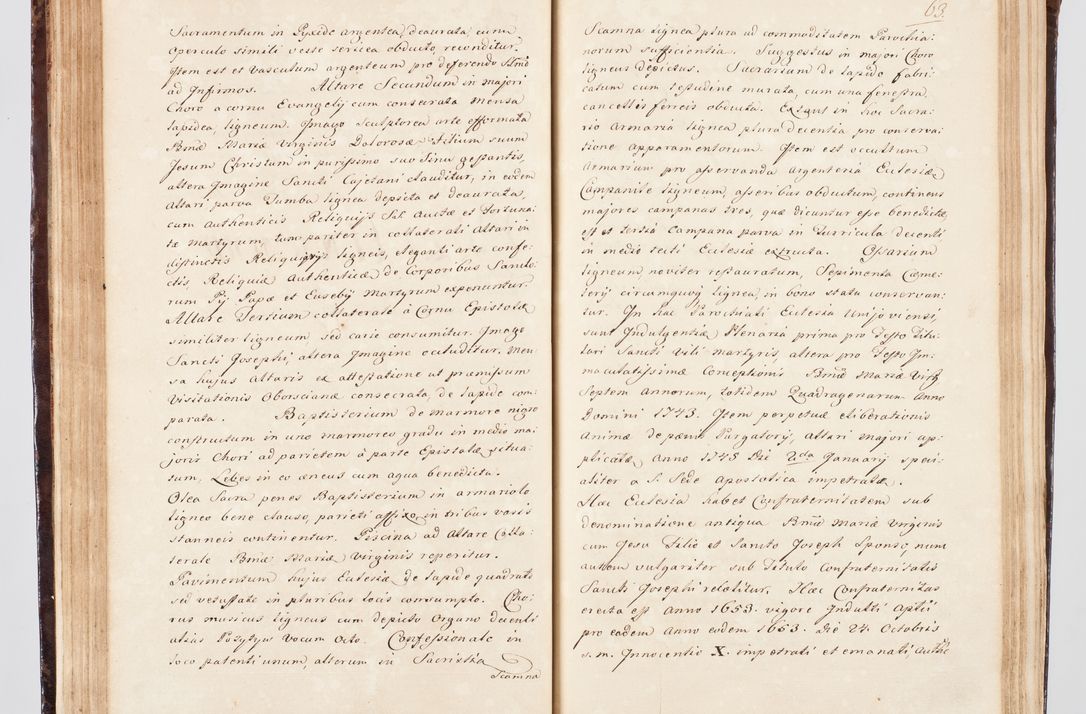 Sacramentum in Pyxide argentea deaurata cum
operculo simili veste sericea obducto, reconditur.
Item est et vasculum argenteum pro deferendo SSmo
ad Infirmos. Altare Secundum in majori
Choro a cornu Evangelij cum consecrata mensa
lapidea, ligneum. Imago Sculptorea arte efformata
Bmæ Mariæ Virginis Dolorosæ, Filium suum
Jesum Christum in purissimo suo Sinu gestantis,
altera Imagine Sancti Cajetani clauditur, in eodem
Altari parva Tumba lignea depicta et deaurata,
cum Authenticis Reliquijs SS. Auctæ et Fortuna-
tæ Martyrum, tam pariter in collaterali Altari in
distinctis Reliquijs ligneis, eleganti arte confe-
ctis, Reliquiæ Authenticæ de Corporibus Sancto-
rum Pij Papæ et Eusebij Martyrum exponuntur.
Altare Tertium collaterale à Cornu Epistolæ
similiter ligneum sed carie consumitur. Imago
Sancti Josephi, altera Imagine occluditur. Men-
sa hujus Altaris ex attestatione ut præmissum
Visitationis Oborscianæ consecrata, de lapide com-
parata. Baptisterium de marmore nigro
constructum in uno marmoreo gradu in medio ma-
joris Chori ad parietem à parte Epistolæ situa-
tum, Lebes in eo æneus cum aqua benedicta.
Olea Sacra penes Baptisterium in armariolo
ligneo bene clauso, parieti affixo, in tribus vasis
stanneis continentur. Piscina ad Altare Colla-
terale Bmæ Mariæ Virginis reperitur.
Pavimentum hujus Ecclesiæ de lapide quadrato
sed vetustate in pluribus locis consumpto. Cho-
rus musicus ligneus cum depicto Organo decenti
alias Pozytyw vocum octo. Confessionale in
loco patenti unum, alterum in Sacristia
Scamna
63.
Scamna lignea plura ad commoditatem Parochia-
norum sufficientia. Suggestus in majori Choro
ligneus depictus. Sacrarium de lapide fabri-
catum cum testudine murata, cum una fenestra
cancellis ferreis obducta. Extant in hoc Sacra-
rio Armaria lignea plura decentia pro conserva-
tione apparamentorum. Item est occultum
armarium pro asservanda argenteria Ecclesiæ
Campanile ligneum, asseribus obductum, continens
majores campanas tres, quæ dicuntur esse benedictæ,
est et tertia Campana parva in Turricula decenti
in medio tecti Ecclesiæ extructa. Ossarium
ligneum noviter restauratum, Sepimenta Cæme-
terij circumquaq lignea, in bono statu conservan-
tur. In hac Parochiali Ecclesia Uniioviensi,
sunt Indulgentiæ Plenaria prima pro Festo Titu-
lari Sancti Viti Martyris, altera pro Festo Im-
maculatissimæ Conceptionis Bmæ Mariæ Virg
Septem annorum, totidem Quadragenarum Anno
Domini 1743. Item perpetuæ Liberationis
Animæ de pænis Purgatorij, Altari majori ap-
plicatæ, Anno 1745 Die 2da Januarij speci-
aliter a S. Sede Apostolica impetratæ.
Hæc Ecclesia habet Confraternitatem sub
denominatione antiqua Bmæ Mariæ Virginis
cum Jesu Filio et Sancto Joseph Sponso, nunc
autem vulgariter sub Titulo Confraternitatis
Sancti Josephi relatitur. Hæc Confraternitas
erecta est Anno 1653. vigore Indulti Aplici
pro eadem Anno eodem 1653. Die 24. Octobris
s. m. Innocentio X. impetrati et emanati, Authe